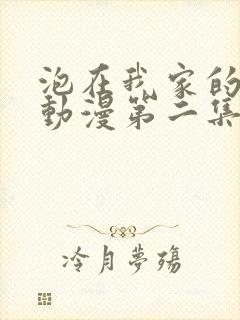 泡在我家的
動漫第二集
冷月夢殤